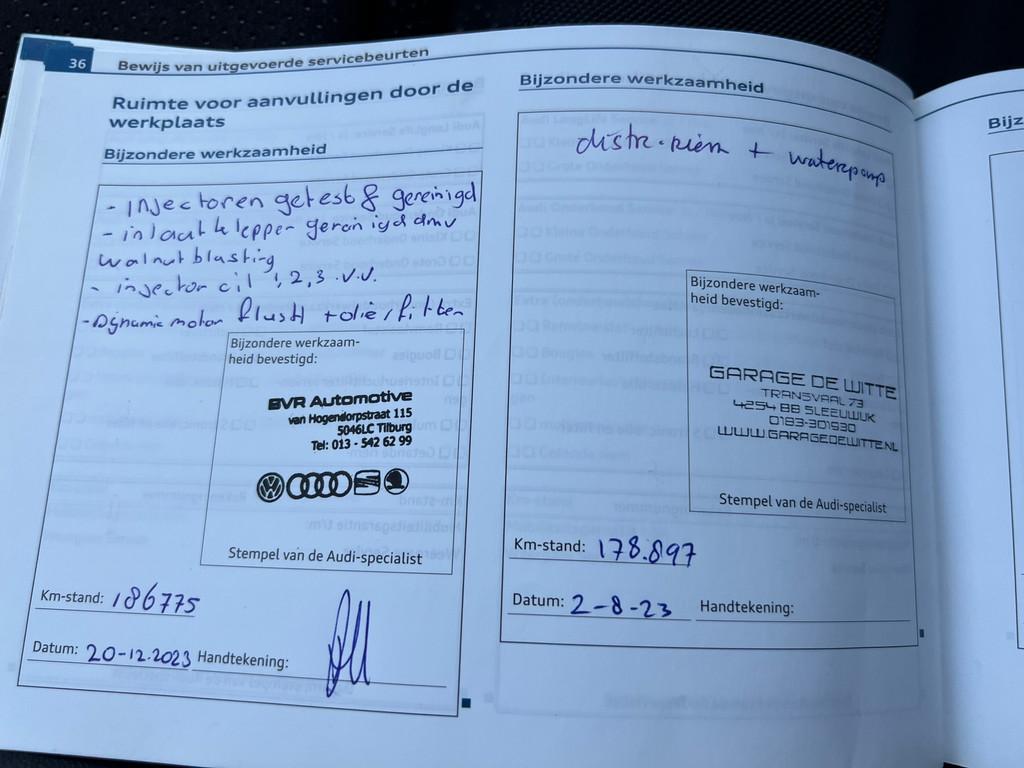 36
Bewijs van uitgevoerde servicebeurten
Ruimte voor aanvullingen door de
werkplaats
Bijzondere werkzaamheid
- injectoren getest & gereinigd
- inlaatklepper gereinigd dmv
walnutblasting
- injector cil 1, 2, 3 v.v.
- Dynamic motor flush + olie/filter
Bijzondere werkzaam-
heid bevestigd:
BVR Automotive
van Hogendorpstraat 115
5046LC Tilburg
Tel: 013 - 542 62 99
Stempel van de Audi-specialist
Km-stand: 186775
Datum: 20-12.2023 Handtekening:
Bijzondere werkzaamheid
distr. riem + waterpomp
Bijzondere werkzaam-
heid bevestigd:
GARAGE DE WITTE
TRANSVAAL 73
4254 BB SLEEUWIJK
0183-301930
WWW.GARAGEDEWITTE.NL
Stempel van de Audi-specialist
Km-stand: 178.897
Datum: 2-8-23 Handtekening:
Bijz